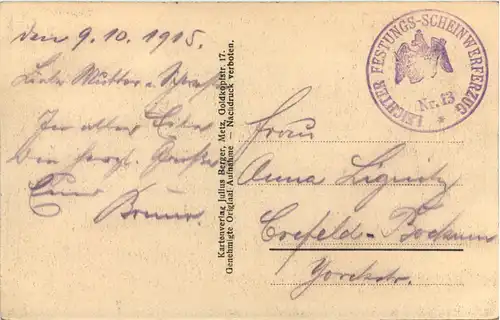 den 9.10.1915.
Liebe Mutter u.
In aller Eile
Die herzl. Grüße
Euer
Bruno.
Kartenverlag Julius Berger, Metz, Goldkopfstr 17.
Genehmigte Original Aufnahme — Nachdruck verboten.
LEICHTER FESTUNGS-SCHEINWERFERZUG
Nr. 13
Frau
Anna Lignitz
Crefeld-Bockum
Yorckstr.